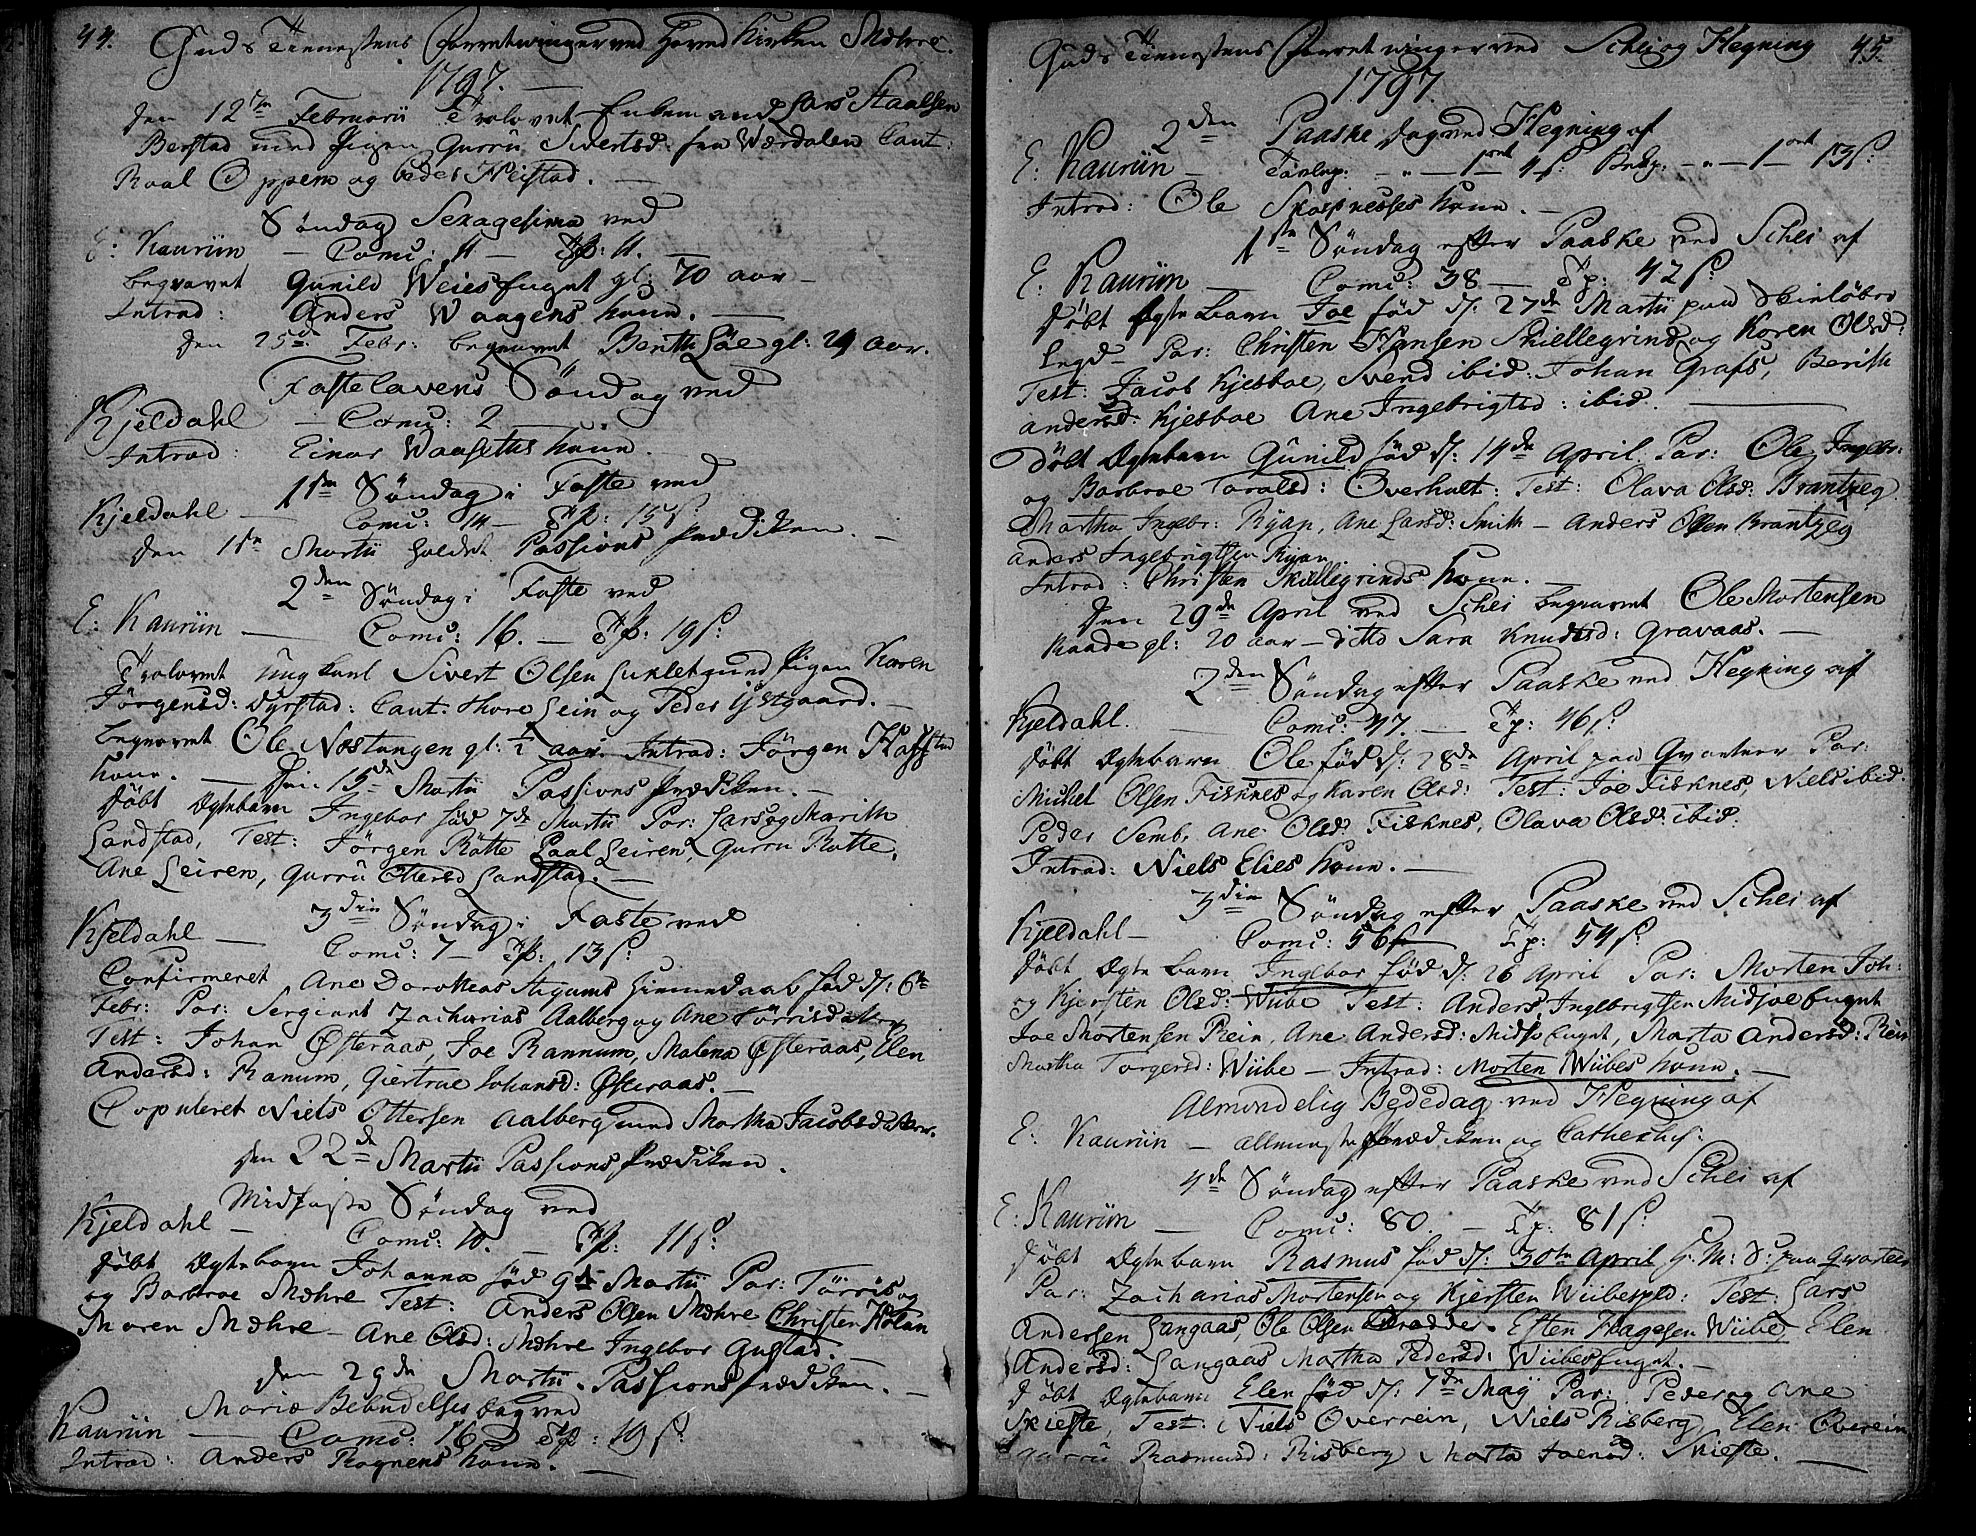 44. Guds Tienestens Forretninger ved Hoved Kirken Mæhre.
1797.
den 12te Februarii Trolovet Enkemand Lars Staalsen
Berstad med Pigen Gurru Sivertsd: fra Wærdalen Caut:
Roal Oppem og Peder Heistad.
Søndag Sexagesima ved
E: Kauriin — Comu: 11 — Tp: 11.
begravet Gunild Weiesfuget gl: 70 aar —
Introd: Anders Waagens Kone.
den 25de Febr: begravet Berith Løe gl: 24 aar.
Fastelavens Søndag ved
Kjeldahl — Comu: 2
Introd: Einar Waasettes Kone.
1ste Søndag i Faste ved
Kjeldahl — Comu: 14 — Tp: 15 s:
den 1ste Martii holdet Passions Prædiken. —
2den Søndag i Faste ved
E: Kauriin — Comu: 16. — Tp: 19 s:
Trolovet ungkarl Sivert Olsen med Pigen Karen
Jørgensd: Dyrstad: Caut: Thore Lein og Peder Østgaard. —
begravet Ole Nostangen gl: ½ aar. Introd: Jørgen Haffstad
Kone. — den 15de Martii Passions Prædiken. —
Døbt Ægtebarn Ingebor fød 7de Martii Par: Lars og Marith
Landstad, Test: Jørgen Rotte Paal Leiren, Gurru Rotte,
Ane Leiren, Gurru Ottersd Landstad. —
3die Søndag i Faste ved
Kjeldahl — Comu: 7 — Tp: 13 s:
Confirmeret Ane Dorothea fød d: 6te
Febr: Par: Sergiant Zacharias Aalberg og Ane Tørrisd
Test: Johan Østeraas, Joe Rannum, Malena Østeraas, Elen
Andersd: Ranum, Giertrue Johansd: Østeraas. —
Copuleret Niels Ottersen Aalberg med Martha Jacobsd
den 22de Martii Passions Prædiken.
Midfaste Søndag ved
Kjeldahl — Comu: 10. — Tp: 11 s:
Døbt Ægtebarn Johanna fød 9de Martii Par: Tørris og
og Barbroe Mæhre Test: Anders Olsen Mæhre Christen Holan
Maren Mæhre — Ane Olsd: Mæhre Ingebor Gustad. —
den 29de Martii Passions Prædiken. —
Mariæ Bebudelses Dag ved
Kauriin — Comu: 16 Tp: 19 s:
Introd: Anders Rognens Kone. —
Guds Tienestens Forretninger ved Schei og Hegning 45.
1797.
2den Paaske Dag ved Hegning af
E: Kauriin — 1 ort 4 s: — 1 ort 13 s:
Introd: Ole Skopnesses Kone. —
1ste Søndag efter Paaske ved Schei af
E: Kauriin — Comu: 38 — Tp: 42 s:
Døbt Ægtebarn Joe fød d: 27de Martii paa Skinløbro
Legd — Par: Christen Hansen Skillegrind og Karen Olsd:
Test: Jacob Kjesboe, Svend ibid: Johan Grafs, Berith
Andersd: Kjesboe Ane Ingebrigtsd: ibid. —
Døbt Ægtebarn Gunild fød d: 14de April Par: Ole Ingebr:
og Barbroe Toralsd: Overholt: Test: Olava Olsd: Brantzeg
Martha Ingebr: Ryan, Ane Larsd: Smith — Anders Olsen Brantzeg
Anders Ingebrigtsen Ryan.
Introd: Christen Skillegrinds Kone. —
den 29de April ved Schei begravet Ole Mortensen
Raade gl: 20 aar — ditto Sara Knudsd: Gravaas. —
2den Søndag efter Paaske ved Hegning af
Kjeldahl. — Comu: 47. — Tp: 46 s:
Døbt Ægtebarn Ole fød d: 28de April paa Qvarteer Par:
Mickel Olsen Fisknes og Karen Olsd: Test: Joe Fisknes, Niels ibid:
Peder Semb, Ane Olsd: Fisknes, Olava Olsd: ibid.
Introd: Niels Elies Kone. —
3die Søndag efter Paaske ved Schei af
Kjeldahl — Comu: 56 — Tp: 54 s:
Døbt Ægtebarn Ingebor fød d: 26 April Par: Morten Joh:
og Kjersten Olsd: Wiibe Test: Anders Ingebrigtsen Midjoefuget
Joe Mortensen Rein, Ane Andersd: Midjofuget, Marta Andersd: Rein
Martha Torgersd: Wiibe — Introd: Morten Wiibes Kone. —
Almindelig Bededag ved Hegning af
E: Kauriin — Prædiken og Cathechis:
4de Søndag efter Paaske ved Schei af
E: Kauriin — Comu: 80. — Tp: 81 s:
Døbt Ægtebarn Rasmus fød d: 30te April H: M: S: paa Qvarteer
Par: Zacharias Mortensen og Kjersten Wiibe Test: Lars
Andersen Langaas, Ole Olsen Esten Hagesen Wiibe, Elen
Andersd: Langaas Martha Pedersd: Wiibesfuget. —
Døbt Ægtebarn Elen fød d: 7de Maij Par: Peder og Ane
Skiefte, Test: Niels Overrein, Niels Risberg, Elen Overein
Gurru Rasmusd: Risberg Marta Joensd: Skiefte. —